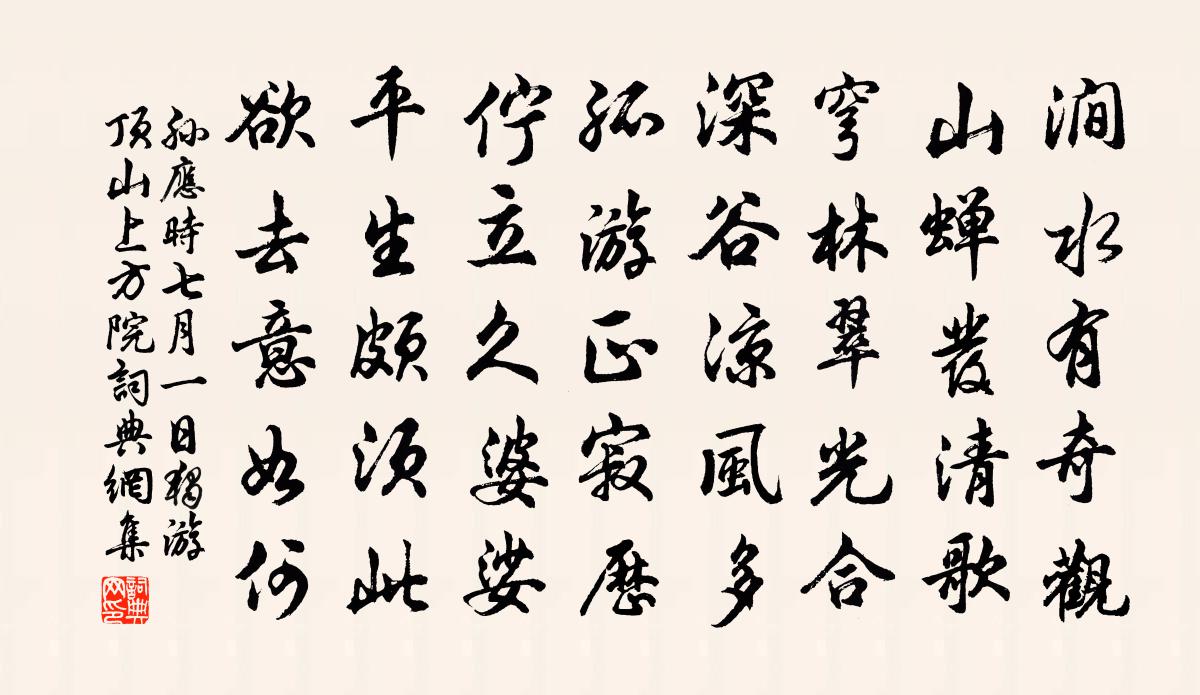 澗水有奇觀
山蟬發清歌
穹林翠光合
深谷涼風多
孤游正寂歷
佇立久婆娑
平生頗須此
欲去意如何
孫應時七月一日獨游
頂山上方院詞典網集
詞典网印